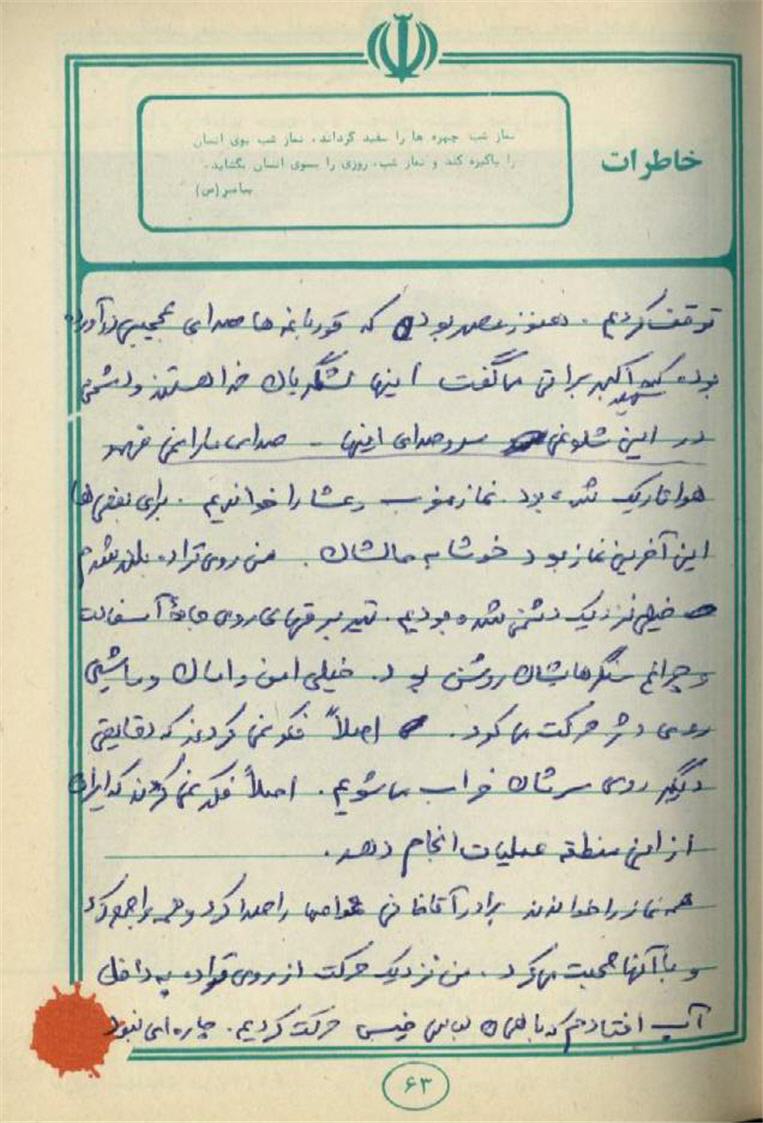 خاطرات
نماز شب چهره ها را سفید گرداند، نماز شب بوی انسان
را پاکیزه کند و نماز شب، روزی را بسوی انسان بکشاند.
پیامبر (ص)
توقف کردیم. هنوز عصر بود که قورباغه ها صدای عجیبی درآورده
بودند شهید اکبر براتی می گفت اینها لشگریان خدا هستند و دشمن
در این شلوغی سر و صدای اینها - صدای ما را نمی فهمد
هوا تاریک شده بود. نماز مغرب و عشا را خواندیم. برای بعضی ها
این آخرین نماز بود خوشا به حالشان. من روی قراده بلند شدم
خیلی نزدیک دشمن شده بودیم. تیر برقهای روی جادۀ آسفالت
و چراغ سنگرهایشان روشن بود. خیلی امن و امان و ماشین
روی دژ حرکت می کرد. اصلاً فکر نمی کردند که دقایقی
دیگر روی سرشان خراب می شویم. اصلاً فکر نمی کردند که ایران
از این منطقه عملیات انجام دهد.
همه نماز را خواندند برادر آقاخانی غواصها را صدا کرد و همه را جمع کرد
و با آنها صحبت می کرد. من نزدیک حرکت از روی قراده به داخل
آب افتادم که با همان لباس خیس حرکت کردیم. چاره ای نبود
۶۳